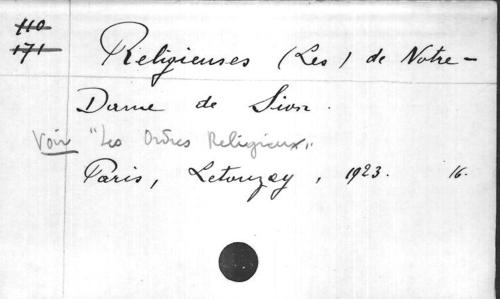 110
171
Religieuses (Les) de Notre-
Dame de Sion.
Voir "Les Ordres Religieux"
Paris, Letouzey, 1923. 16.